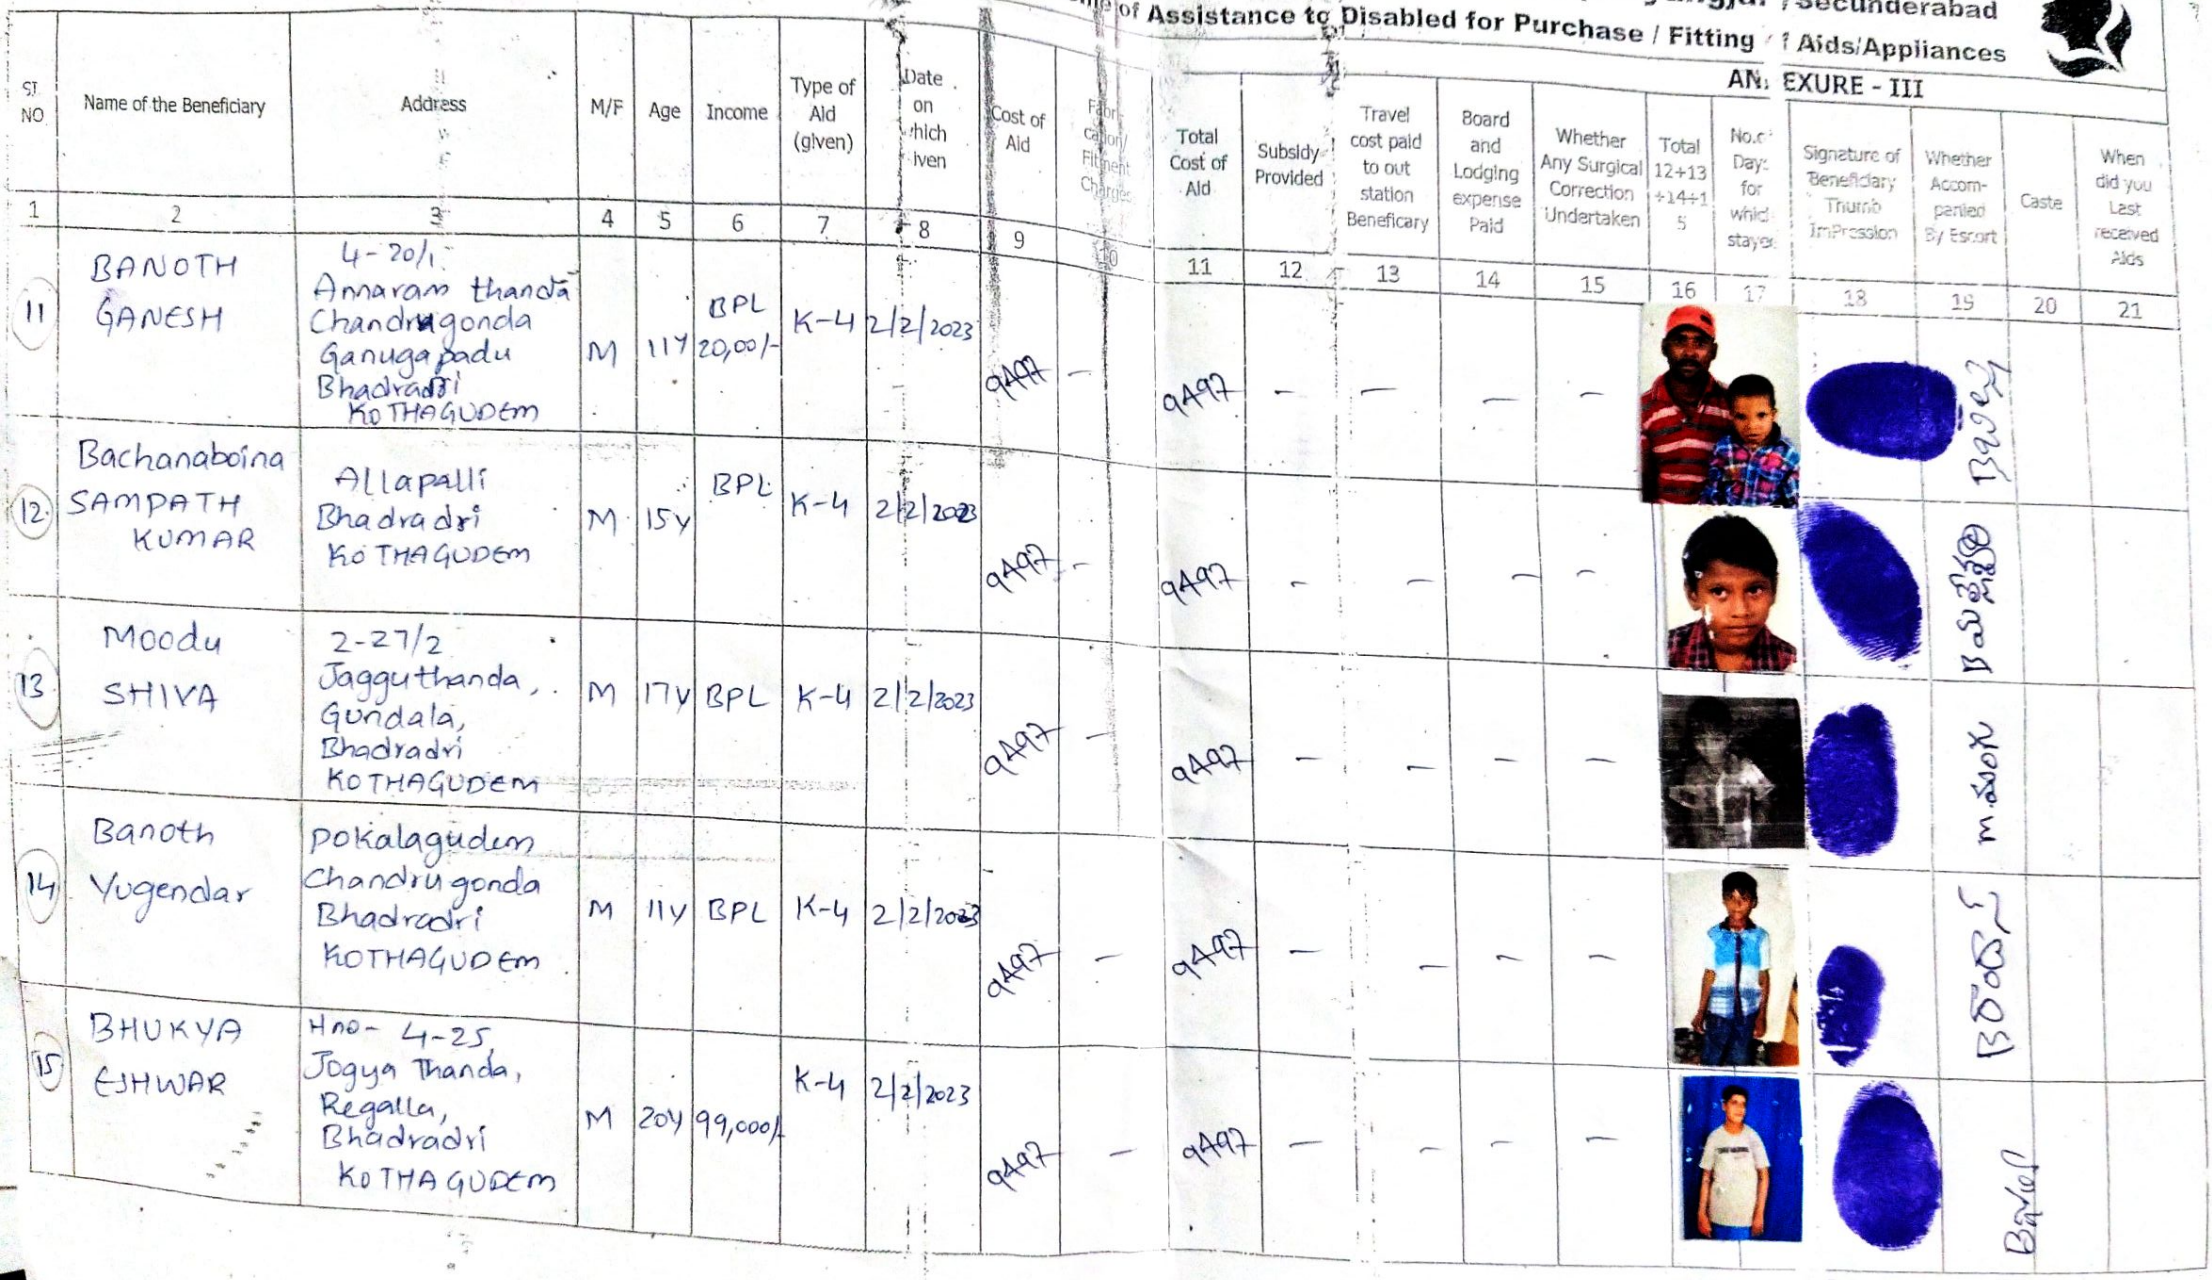 Secunderabad
of Assistance to Disabled for Purchase / Fitting Aids/Appliances
EXURE - III
NO
Name of the Beneficiary
Address
M/F
Age
Income
Type of
Aid
(given)
Date
on
which
iven
Cost of
Aid
Fabri
cation/
Fitment
Charges
Total
Cost of
Aid
Subsidy
Provided
Travel
cost paid
to out
station
Beneficary
Board
and
Lodging
expense
Paid
Whether
Any Surgical
Correction
Undertaken
Total
12+13
+14+1
5
Day
for
whic
stayed
Signature of
Beneficiary
Thumb
ImPression
Whether
Accom-
panied
By Escort
Caste
When
did you
Last
received
Aids
1 2 3 4 5 6 7 8 9 10 11 12 13 14 15 16 17 18 19 20 21
11
BANOTH
GANESH
4-20/1
Annaram thanda
Chandrugonda
Ganugapadu
Bhadradri
KOTHAGUDEM
M
11Y
BPL
20,00/-
K-4
2/2/2023
9497 -
9497 - - - -
12
Bachanaboina
SAMPATH
KUMAR
Allapalli
Bhadradri
KOTHAGUDEM
M
15Y
BPL
K-4
2/2/2023
9497 -
9497 - - - -
13
Moodu
SHIVA
2-27/2
Jagguthanda,
Gundala,
Bhadradri
KOTHAGUDEM
M
17Y
BPL
K-4
2/2/2023
9497 -
9497 - - - -
14
Banoth
Yugendar
Pokalagudem
Chandrugonda
Bhadradri
KOTHAGUDEM
M
11Y
BPL
K-4
2/2/2023
9497 -
9497 - - - -
15
BHUKYA
ESHWAR
Hno- 4-25,
Jogya Thanda,
Regalla,
Bhadradri
KOTHAGUDEM
M
20Y
99,000/-
K-4
2/2/2023
9497 -
9497 - - - -